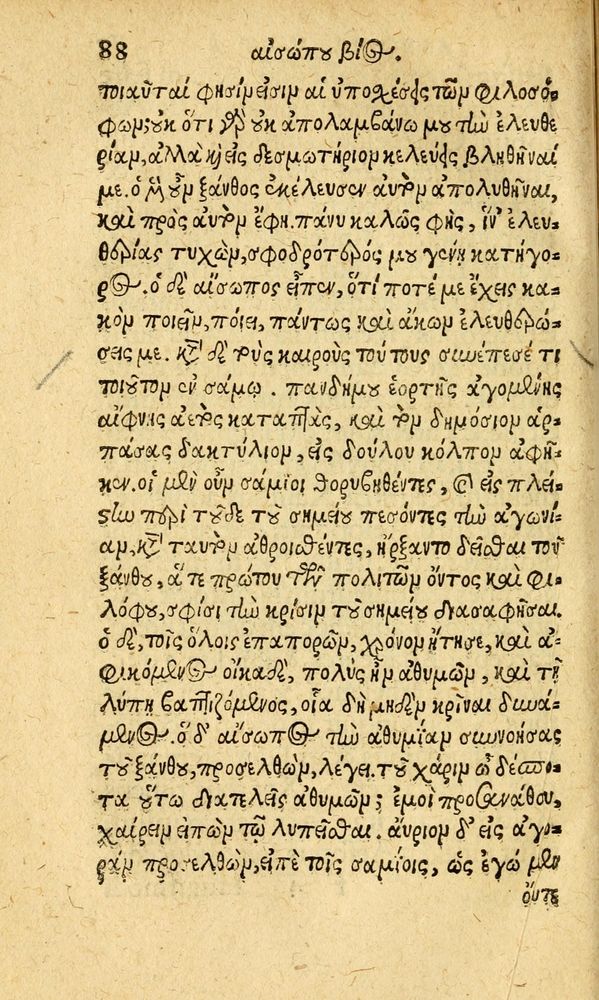 88 αἰσώπου βίος.
τοιαῦταί φησίν εἰσιν αἱ ὑποσχέσεις τῶν φιλοσό-
φων; οὐκ ὅτι γὰρ οὐκ ἀπολαμβάνω μου τὴν ἐλευθε
ρίαν, ἀλλὰ καὶ εἰς δεσμωτήριον κελεύεις βληθῆναί
με. ὁ μὲν οὖν ξάνθος ἐκέλευσεν αὐτὸν ἀπολυθῆναι,
καὶ πρὸς αὐτὸν ἔφη. πάνυ καλῶς φῂς, ἵν' ἐλευ-
θερίας τυχὼν, σφοδρότερός μου γένῃ κατήγο-
ρος. ὁ δὲ αἴσωπος εἶπεν, ὅ,τι ποτέ με ἔχεις κα-
κὸν ποιεῖν, ποίει, πάντως καὶ ἄκων ἐλευθερώ-
σεις με. κατὰ δὲ τοὺς καιροὺς τούτους συνέπεσέ τι
τοιοῦτον ἐν σάμῳ. πανδήμου ἑορτῆς ἀγομένης
αἴφνης ἀετὸς καταπτὰς, καὶ τὸν δημόσιον ἁρ-
πάσας δακτύλιον, εἰς δούλου κόλπον ἀφῆ-
κεν. οἱ μὲν οὖν σάμιοι θορυβηθέντες, καὶ εἰς πλεί-
στην περὶ τοῦδε τοῦ σημείου πεσόντες τὴν ἀγωνί-
αν, κατὰ ταυτὸν ἀθροισθέντες, ἤρξαντο δεῖσθαι τοῦ
ξάνθου, ἅτε πρώτου τῶν πολιτῶν ὄντος καὶ φι-
λοσόφου, σφίσι τὴν κρίσιν τοῦ σημείου διασαφῆσαι.
ὁ δὲ, τοῖς ὅλοις ἐπαπορῶν, χρόνον ᾔτησε, καὶ ἀ-
φικόμενος οἴκαδε, πολὺς ἦν ἀθυμῶν, καὶ τῇ
λύπῃ βαπτιζόμενος, οἷα δὴ μηδὲν κρῖναι δυνά-
μενος. ὁ δ' αἴσωπος τὴν ἀθυμίαν συννοήσας
τοῦ ξάνθου, προσελθὼν, λέγει. τοῦ χάριν ὦ δέσπο-
τα οὕτω διατελεῖς ἀθυμῶν; ἐμοὶ προσανάθου,
χαίρειν εἰπὼν τῷ λυπεῖσθαι. αὔριον δ' εἰς ἀγο-
ρὰν προσελθὼν, εἰπὲ τοῖς σαμίοις, ὡς ἐγὼ μὲν
οὔτε